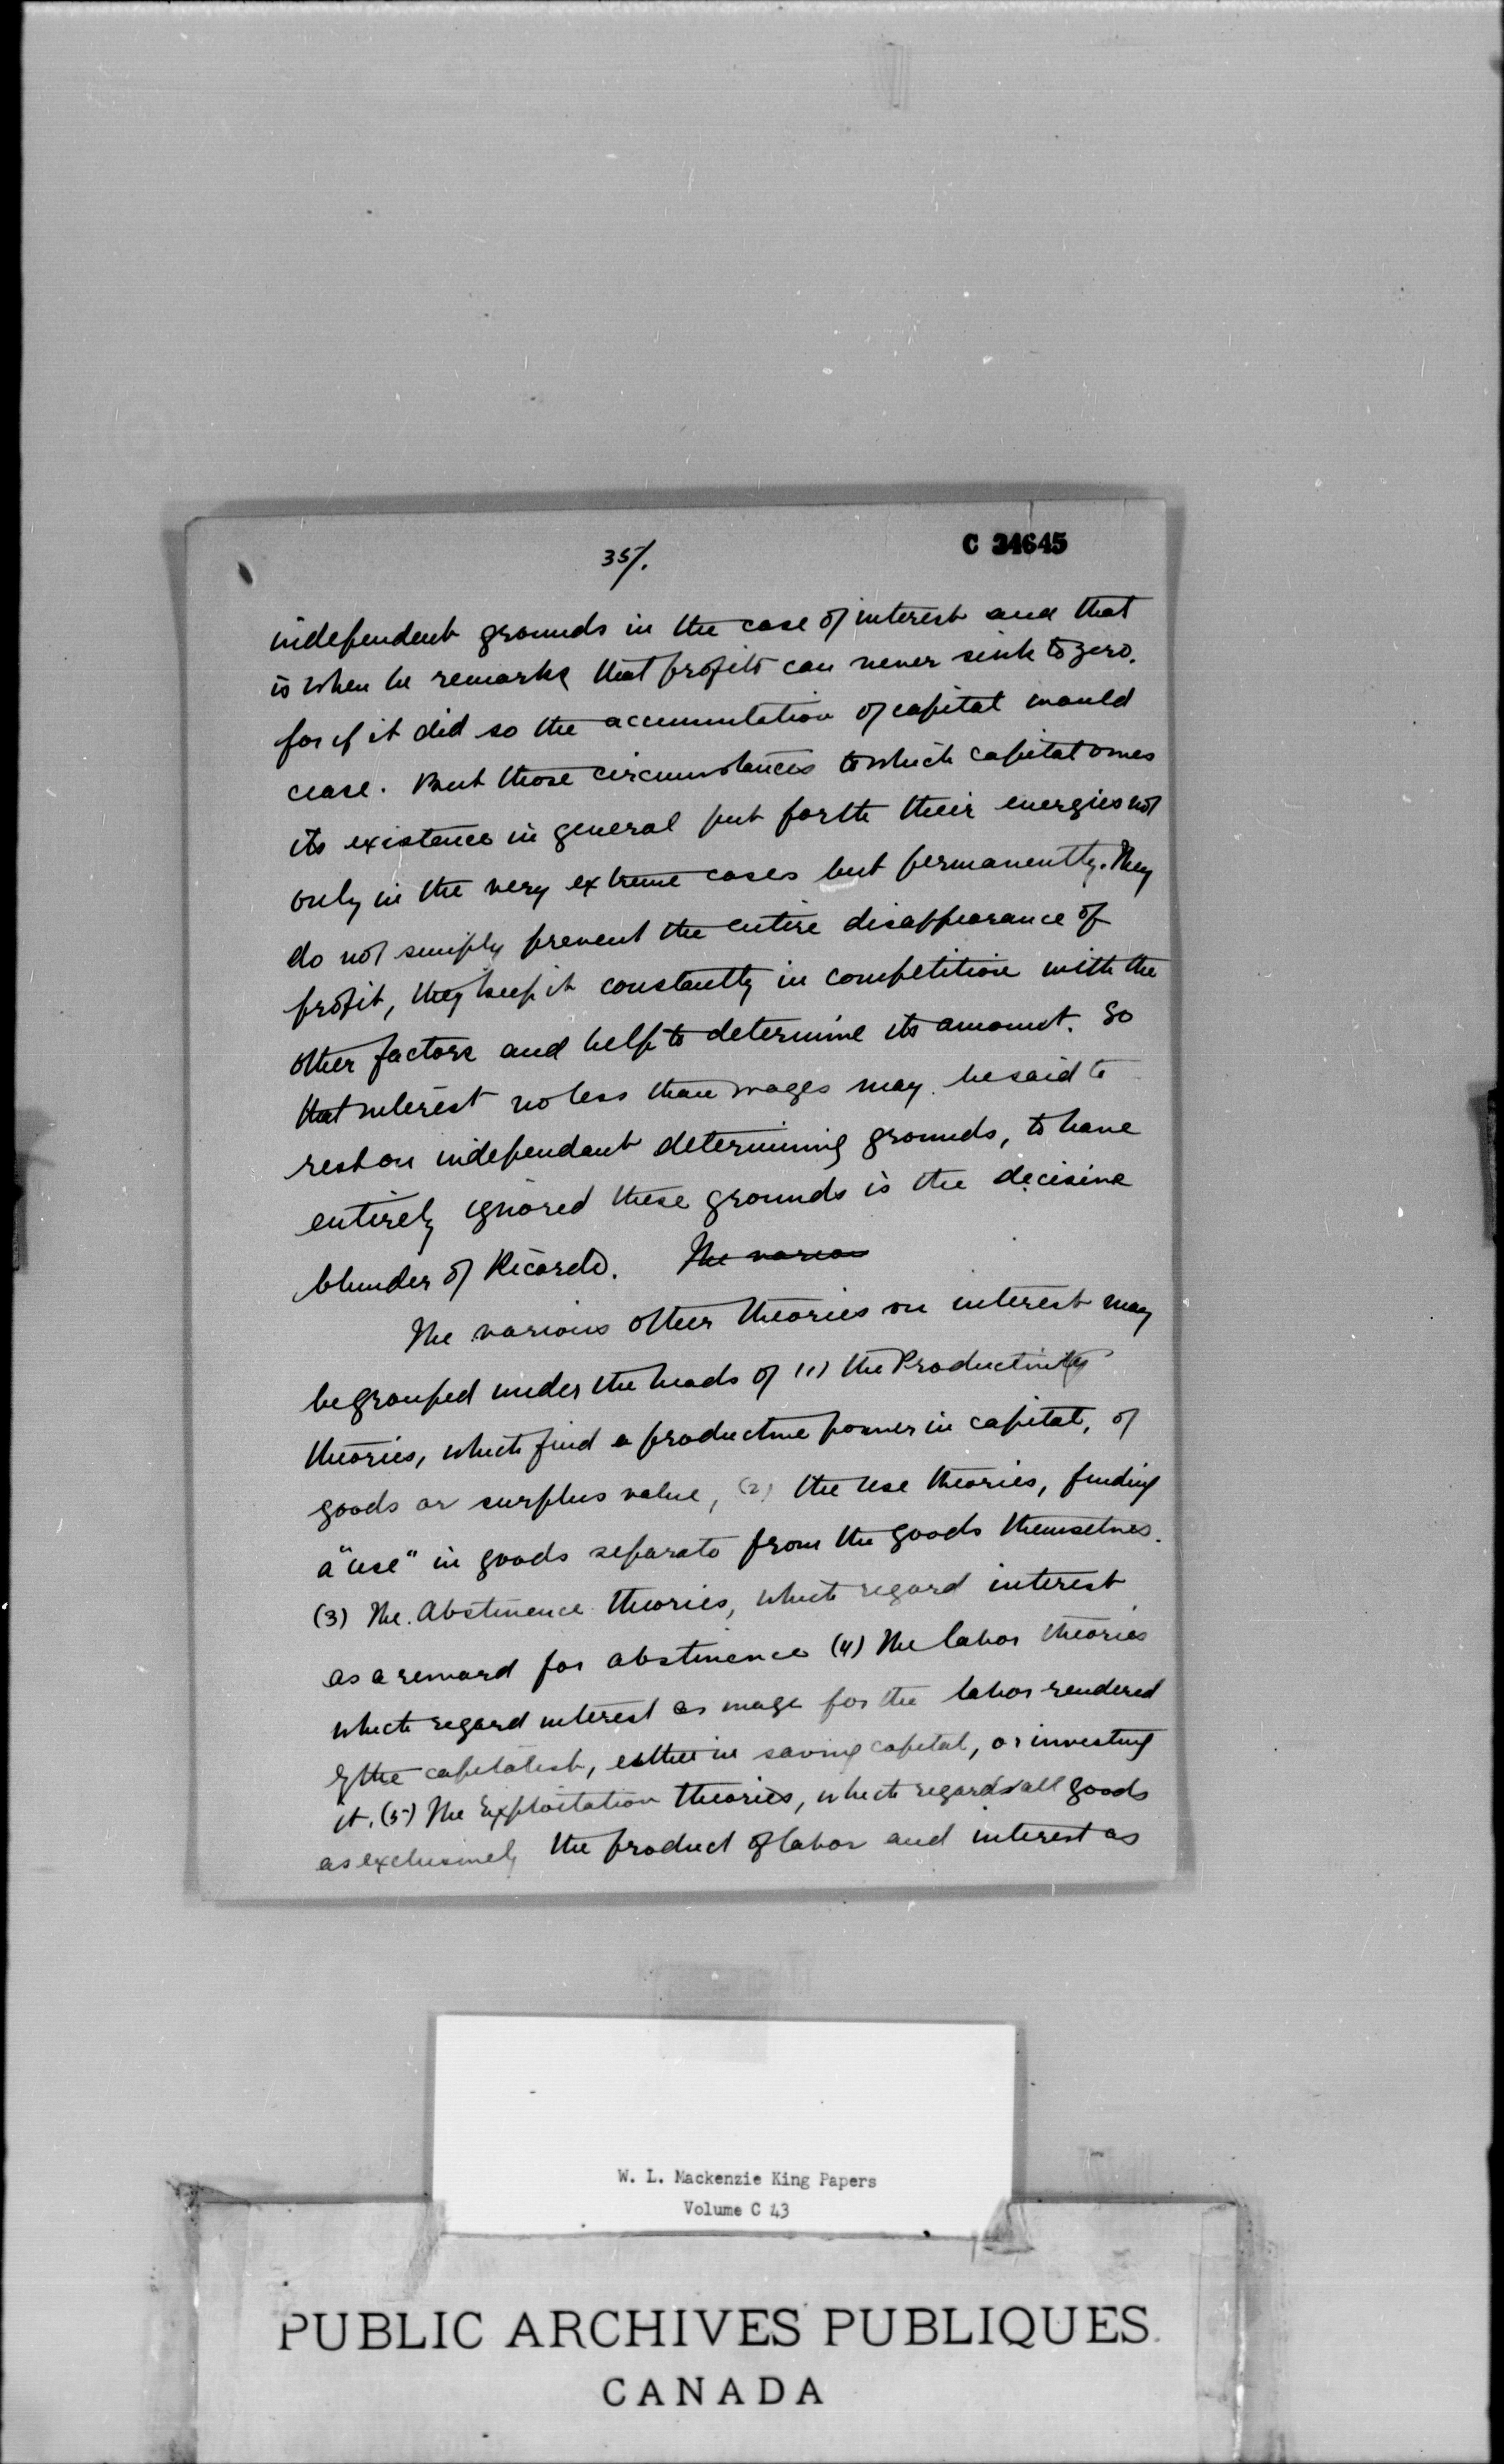 35/.
C 34645
independent grounds in the case of interest and that
is when he remarks that profits can never sink to zero,
for if it did so the accumulation of capital would
cease. But those circumstances to which capital owes
its existence in general put forth their energies not
only in the very extreme cases but permanently. They
do not simply prevent the entire disappearance of
profit, they keep it constantly in competition with the
other factors and help to determine its amount. So
that interest no less than wages may be said to
rest on independant determining grounds, to have
entirely ignored these grounds is the decisive
blunder of Ricardo. The variou
The various other theories on interest may
be grouped under the heads of (1) the Productivity
theories, which find a productive power in capital, of
goods or surplus value, (2) the use theories, finding
a "use" in goods separate from the goods themselves.
(3) The Abstinence theories, which regard interest
as a reward for abstinence (4) The labor theories
which regard interest as wage for the labor rendered
by the capitalist, either in saving capital, or investing
it. (5) The Exploitation theories, which regards all goods
as exclusively the product of labor and interest as
W. L. Mackenzie King Papers
Volume C 43
PUBLIC ARCHIVES PUBLIQUES
CANADA